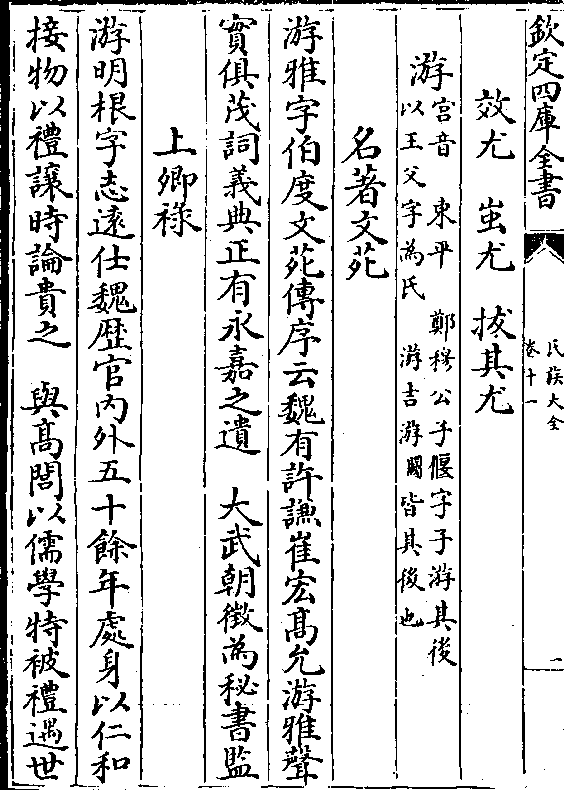 欽定四庫全書
氏族大全
卷十一
一
效尤　蚩尤　拔其尤
游
宮音　東平　鄭穆公子偃字子游其後
以王父字為氏　游吉游國皆其後也
名著文苑
游雅字伯度文苑傳序云魏有許謙崔宏髙允游雅聲
實俱茂詞義典正有永嘉之遺　大武朝徴為秘書監
上卿祿
游明根字志逺仕魏歴官内外五十餘年處身以仁和
接物以禮讓時論貴之　與髙閭以儒學特被禮遇世